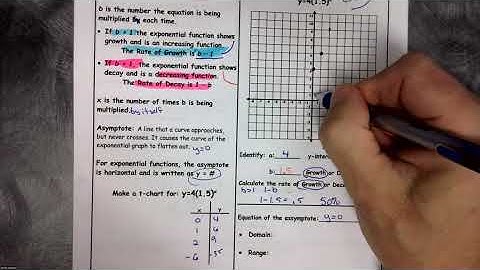 b is the number the equation is being
multiplied by each time.
• If b > 1 the exponential function shows
growth and is an increasing function.
The Rate of Growth is b - 1
• If b < 1, the exponential function shows
decay and is a decreasing function.
The Rate of Decay is 1 - b
x is the number of times b is being
multiplied. by itself
Asymptote: A line that a curve approaches,
but never crosses. It causes the curve of the
exponential graph to flatten out. y=0
For exponential functions, the asymptote
is horizontal and is written as y = #
Make a t-chart for: y=4(1.5)ˣ
x y
0 4
1 6
2 9
-6 .35
y=4(1.5)ˣ
Identify: a: 4 y-inter
b: 1.5 Growth or Dec
Calculate the rate of Growth or Deca
b-1 1-b
1-1.5 = .5 50%
Equation of the asymptote: y=0
• Domain:
• Range: